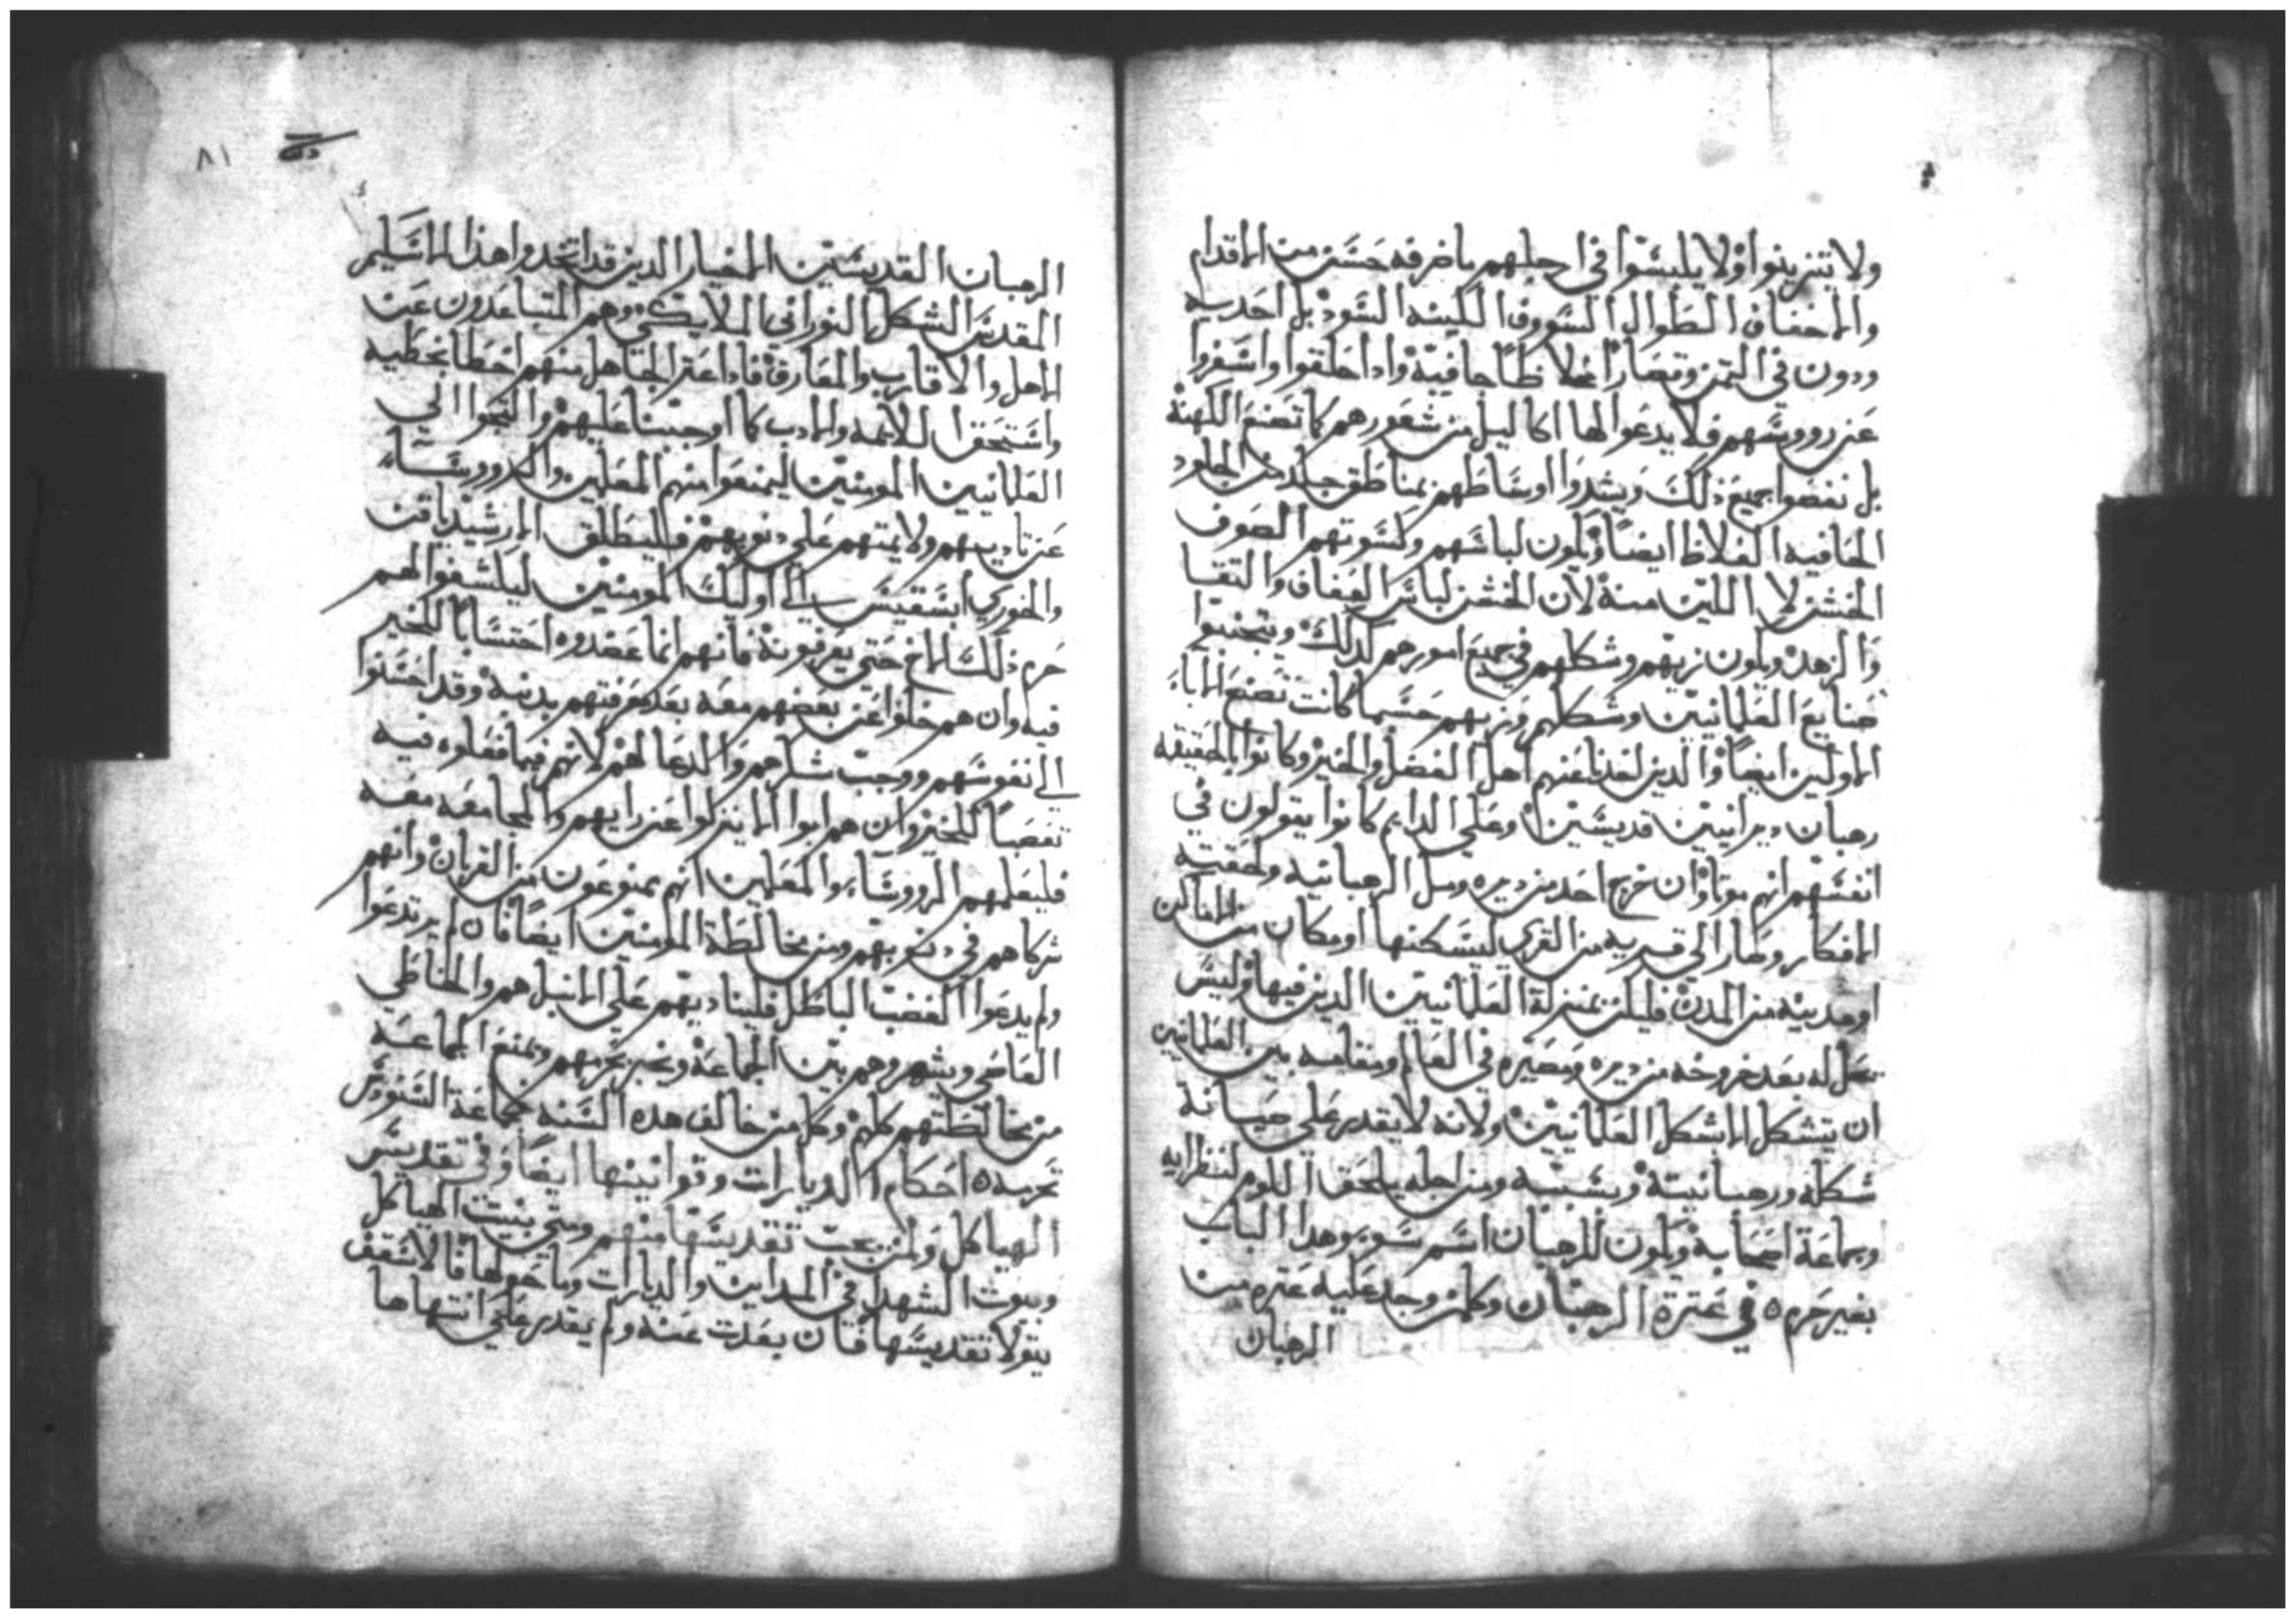 ولا يتزينوا ولا يلبسوا في ارجلهم ما ضرفه حسن من الاقدام
والاخفاف الطوال السوود اللينه السود بل احديه
ودون في الثمن وقصارا غلاظا جافية واذا حلقوا واسفروا
عن رووسهم فلا يدعوا لها اكاليل من شعورهم كما تصنع الكهنة
بل نفضوا جميع ذلك ويشدوا اوساطهم بمناطق جلد من الجلود
الجافيه الغلاظ ايضا ويكون لباسهم وكسوتهم الصوف
الخشن لا اللين منه لان الخشن لباس العفاف والتقا
والزهد ويكون زيهم وشكلهم في جميع امورهم كذلك ويتجنبوا
صنايع العلمانيين وشكلهم وزيهم حسبما كانت تصنع الاباء
الاولين ايضا والذين اخدنا عنهم اهل الفضل والخير وكانوا بالحقيقه
رهبان ديرانيين قديسين وعلي الدايم كانوا يقولون في
انفسهم انهم موتا وان خرج احد من ديره ومل الرهبانيه ولحقته
الافكار وصار الي قريه من القري ليسكنها او مكان من الاماكن
او مدينه من المدن فليكن بمنزلة العلمانيين الدين فيها وليس
يحل له بعد خروجه من ديره ومصيره في العالم ومقامه بين العلمانيين
ان يتشكل الا بشكل العلمانيين ولانه لا يقدر علي صيانة
شكله ورهبانيته وبسببه ومن اجله يلحق اللوم لنظرايه
وجماعة اصحابه ويكون للرهبان اسم سوء وهدا الباب
بغير حرم ٥ في عترة الرهبان وكلمن وجد عليه عتره من
الرهبان
٨١
الرهبان القديسين الاخيار الدين قد اتخدوا هذا الاسكيم
المقدس الشكل النوراني الملايكي وهم المتباعدون عن
الاهل والاقارب والمعارف فاذا عتر الجاهل منهم اخطا بخطيه
واستحق اللايمه والادب كما اوجبنا عليهم والتجوا الي
العلمانيين المومنين ليمنعوا منهم المعلمين والرووساء
عن تاديبهم ولايمتهم علي دنوبهم فليطلق الارشيدياقن
والخوري ابسقبس الي اوليك المومنين ليكشفوا لهم
جرم ذلك الاخ حتي يعرفونه فانهم انما عضدوه احتسابا للخير
فيه وان هم خلوا عن بعضهم معه بعد معرفتهم بدنبه وقد احسنوا
الي نفوسهم ووجب شكرهم والدعا لهم لانهم فيما فعلوه فيه
تعصبا للخير وان هم ابوا الا ينزلوا عن رايهم والمجامعه معه
فليعلمهم الرووساء والمعلمين انهم ممنوعون من القربان وانهم
شركاهم في دنوبهم ومن مخالطة المومنين ايضا فان لم يرتدعوا
ولم يدعوا الغضب الباطل فلينا ديهم علي الانبل هم والخاطي
العاصي ويشهروهم بين الجماعة ونخبر بجرمهم وتمنع الجماعه
من مخالطتهم كلهم وكل من خالف هذه السنه جماعة السنودس
تحرمه ٥ احكام الديارات وقوانينها ايضا وفي تقديس
الهياكل ولمن يجب تقديسها منهم ومتي بنيت الهياكل
وبيوت الشهدا في المداين والديارات وما حولها فالاسقف
يتولا تقديسها فان بعدت عنه ولم يقدر علي انتهاها